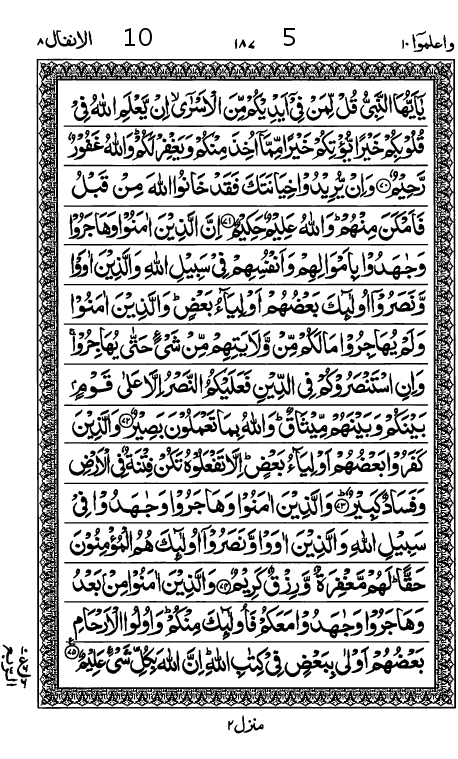 واعلموا ١٠ 5 ١٨٧ 10 الانفال ٨
يٰۤاَيُّهَا النَّبِيُّ قُلْ لِّمَنْ فِيْۤ اَيْدِيْكُمْ مِّنَ الْاَسْرٰۤى ۙ اِنْ يَّعْلَمِ اللّٰهُ فِيْ
قُلُوْبِكُمْ خَيْرًا يُّؤْتِكُمْ خَيْرًا مِّمَّاۤ اُخِذَ مِنْكُمْ وَيَغْفِرْ لَكُمْ ؕ وَاللّٰهُ غَفُوْرٌ
رَّحِيْمٌ ﴿٧٠﴾ وَاِنْ يُّرِيْدُوْا خِيَانَتَكَ فَقَدْ خَانُوا اللّٰهَ مِنْ قَبْلُ
فَاَمْكَنَ مِنْهُمْ ؕ وَاللّٰهُ عَلِيْمٌ حَكِيْمٌ ﴿٧١﴾ اِنَّ الَّذِيْنَ اٰمَنُوْا وَهَاجَرُوْا
وَجٰهَدُوْا بِاَمْوَالِهِمْ وَاَنْفُسِهِمْ فِيْ سَبِيْلِ اللّٰهِ وَالَّذِيْنَ اٰوَوْا
وَّنَصَرُوْۤا اُولٰٓئِكَ بَعْضُهُمْ اَوْلِيَآءُ بَعْضٍ ؕ وَالَّذِيْنَ اٰمَنُوْا
وَلَمْ يُهَاجِرُوْا مَا لَكُمْ مِّنْ وَّلَايَتِهِمْ مِّنْ شَيْءٍ حَتّٰى يُهَاجِرُوْا ۚ
وَاِنِ اسْتَنْصَرُوْكُمْ فِي الدِّيْنِ فَعَلَيْكُمُ النَّصْرُ اِلَّا عَلٰى قَوْمٍۭ
بَيْنَكُمْ وَبَيْنَهُمْ مِّيْثَاقٌ ؕ وَاللّٰهُ بِمَا تَعْمَلُوْنَ بَصِيْرٌ ﴿٧٢﴾ وَالَّذِيْنَ
كَفَرُوْا بَعْضُهُمْ اَوْلِيَآءُ بَعْضٍ ؕ اِلَّا تَفْعَلُوْهُ تَكُنْ فِتْنَةٌ فِي الْاَرْضِ
وَفَسَادٌ كَبِيْرٌ ﴿٧٣﴾ وَالَّذِيْنَ اٰمَنُوْا وَهَاجَرُوْا وَجٰهَدُوْا فِيْ
سَبِيْلِ اللّٰهِ وَالَّذِيْنَ اٰوَوْا وَّنَصَرُوْۤا اُولٰٓئِكَ هُمُ الْمُؤْمِنُوْنَ
حَقًّا ؕ لَهُمْ مَّغْفِرَةٌ وَّرِزْقٌ كَرِيْمٌ ﴿٧٤﴾ وَالَّذِيْنَ اٰمَنُوْا مِنْۢ بَعْدُ
وَهَاجَرُوْا وَجٰهَدُوْا مَعَكُمْ فَاُولٰٓئِكَ مِنْكُمْ ؕ وَاُولُوا الْاَرْحَامِ
بَعْضُهُمْ اَوْلٰى بِبَعْضٍ فِيْ كِتٰبِ اللّٰهِ ؕ اِنَّ اللّٰهَ بِكُلِّ شَيْءٍ عَلِيْمٌ ﴿٧٥﴾
منزل ٢